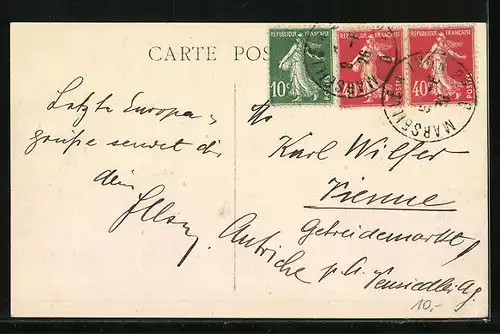 CARTE POS
REPUBLIQUE FRANÇAISE
10c
POSTES
REPUBLIQUE FRANÇAISE
REPUBLIQUE FRANÇAISE
40c
POSTES
MARSEILLE
Letzte Europa=
grüße sendet dir
dein
Karl Wilfer
Vienne
Getreidemarkt
Autriche p. A.
10,-